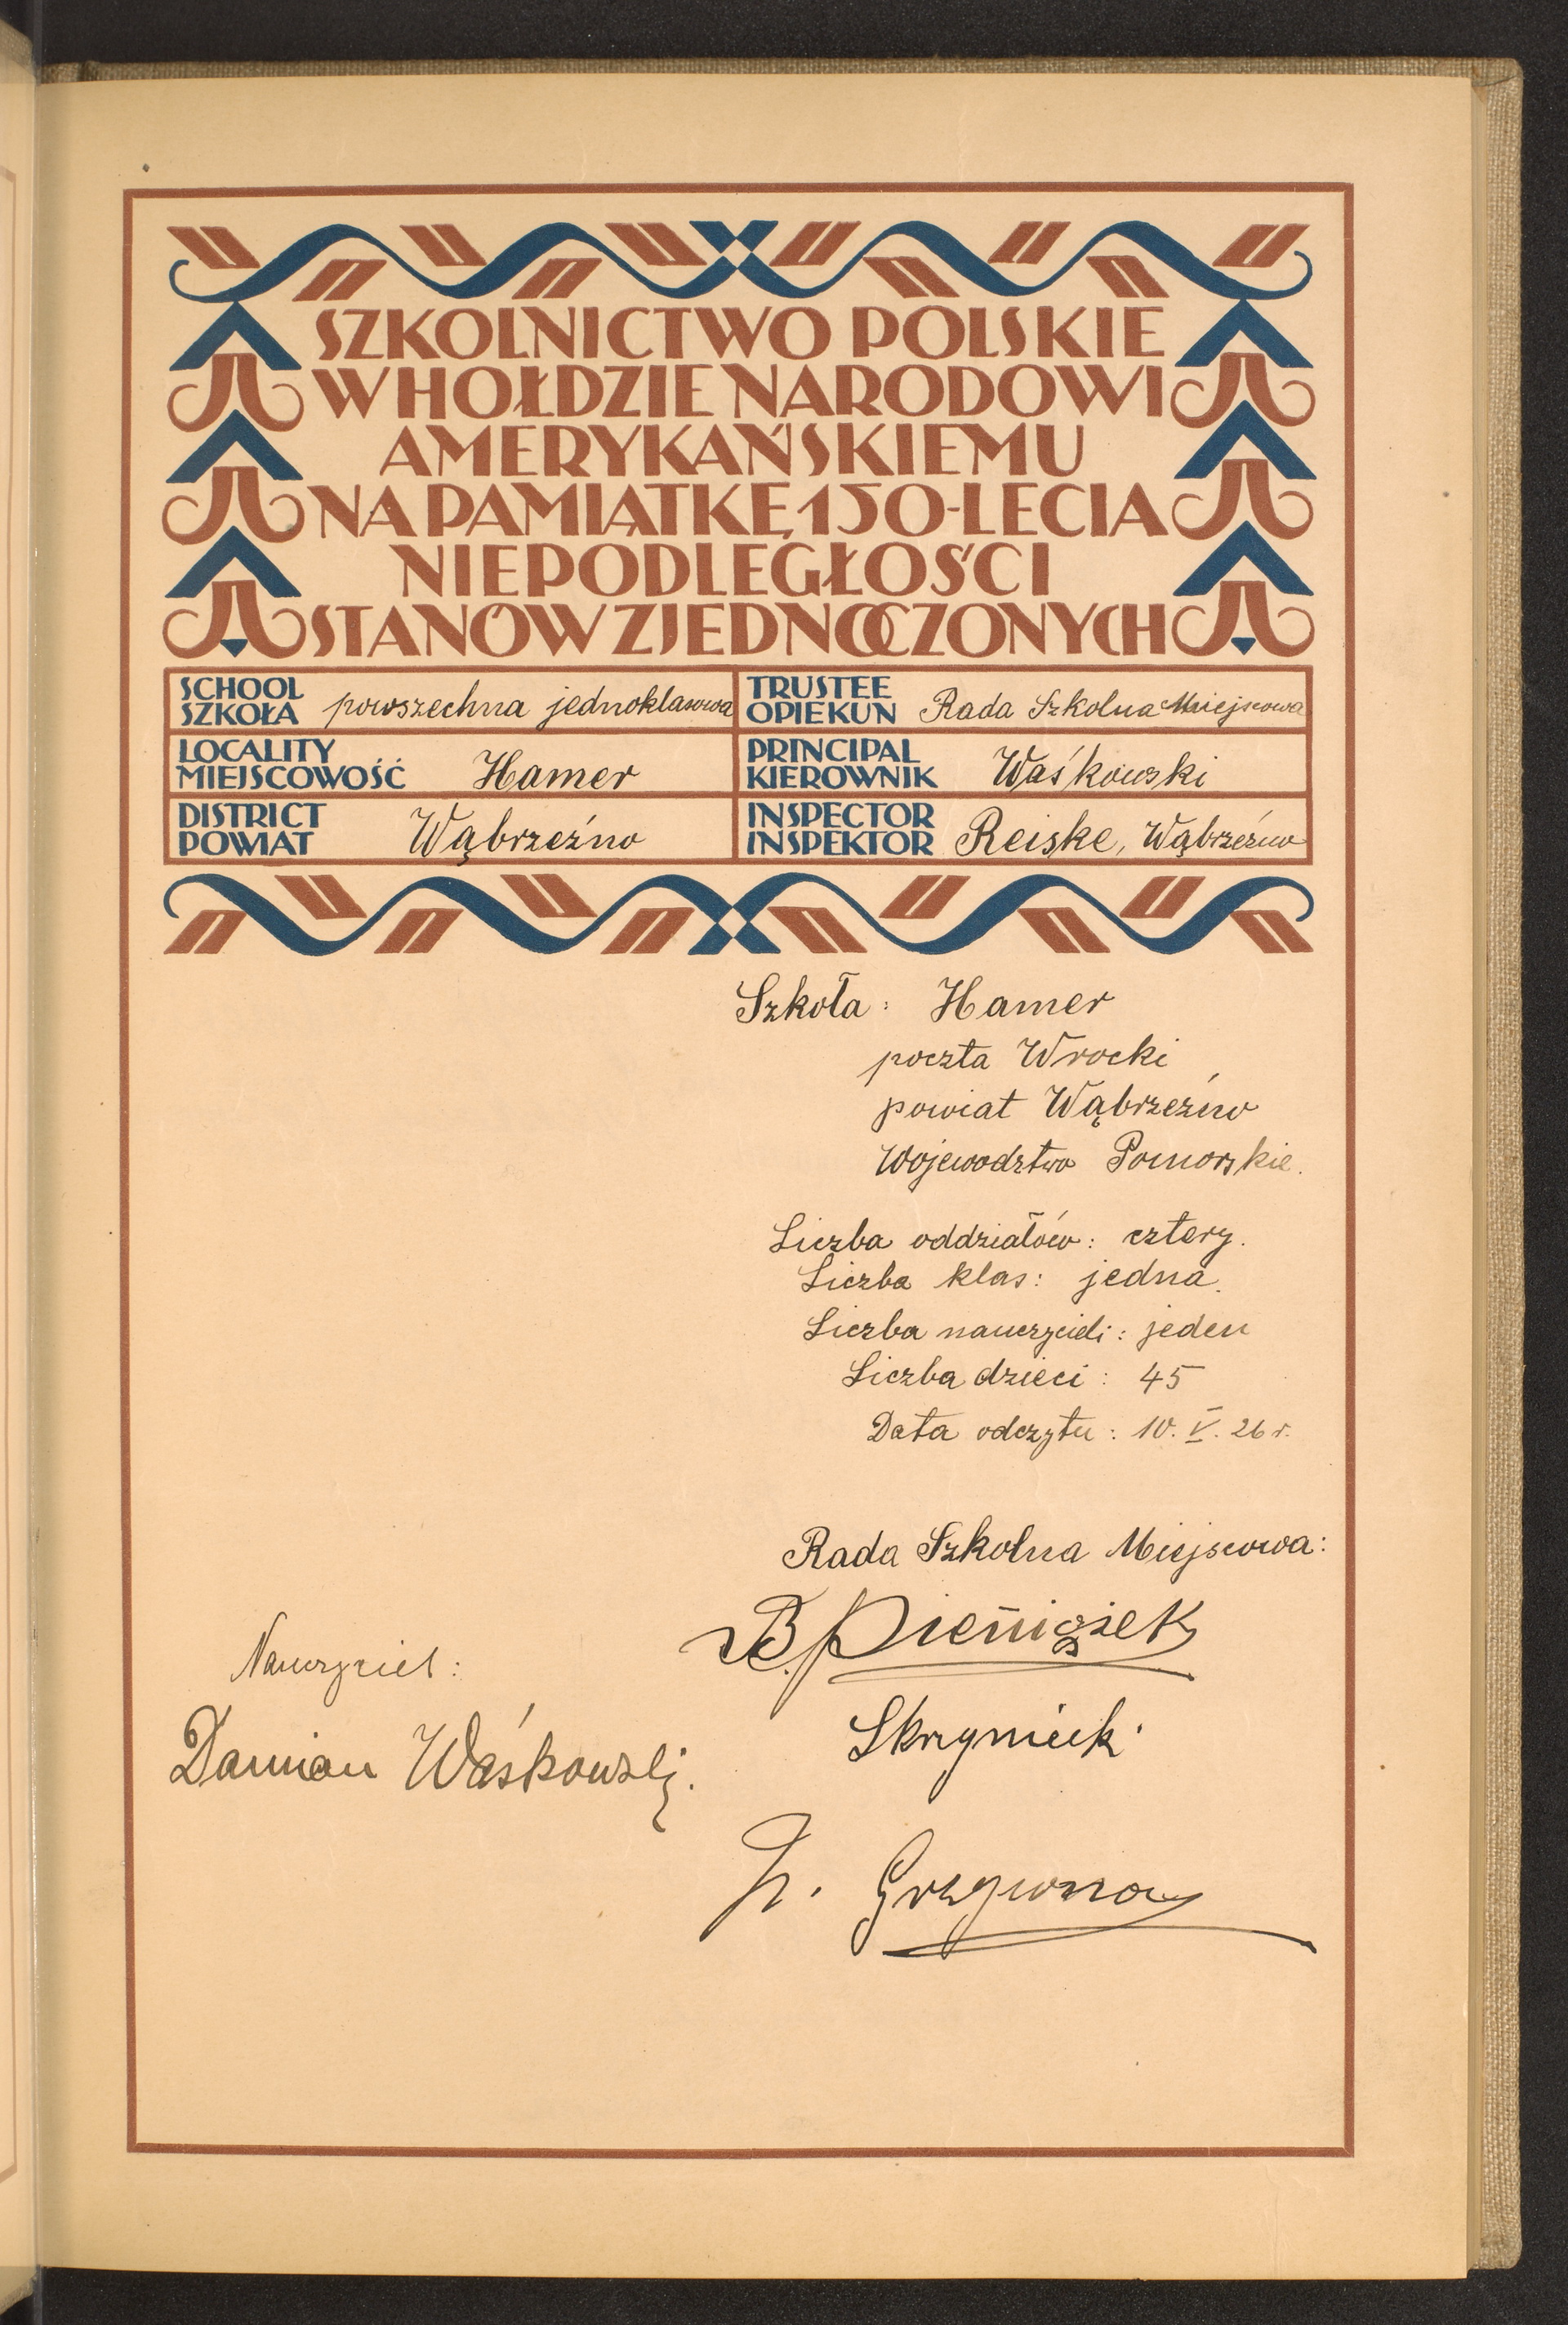 SZKOLNICTWO POLSKIE
W HOŁDZIE NARODOWI
AMERYKAŃSKIEMU
NA PAMIĄTKĘ 150-LECIA
NIEPODLEGŁOŚCI
STANÓW ZJEDNOCZONYCH
SCHOOL
SZKOŁA powszechna jednoklasowa
TRUSTEE
OPIEKUN Rada Szkolna Miejscowa
LOCALITY
MIEJSCOWOŚĆ Hamer
PRINCIPAL
KIEROWNIK Waśkowski
DISTRICT
POWIAT Wąbrzeźno
INSPECTOR
INSPEKTOR Reiske, Wąbrzeźno
Szkoła: Hamer
poczta Wrocki
powiat Wąbrzeźno
Województwo Pomorskie.
Liczba oddziałów: cztery.
Liczba klas: jedna.
Liczba nauczycieli: jeden
Liczba dzieci: 45
Data odczytu: 10. V. 26 r.
Rada Szkolna Miejscowa:
B. Pieniążek
Nauczyciel:
Skrzyniecki
Damian Waśkowski.
Grzywna